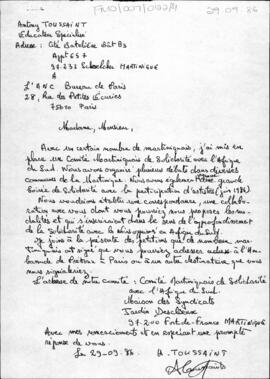 29.09.86
Antony TOUSSAINT
Educateur Spécialisé
Adresse : Cité Batelière Bât B3
Appt 657
97.233 Schoelcher MARTINIQUE
A
L'ANC Bureau de Paris
28, Rue des Petites Ecuries
75010 Paris
Madame, Monsieur,
Avec un certain nombre de martiniquais, j'ai mis en
place un Comité Martiniquais de Solidarité avec l'Afrique
du Sud. Nous avons organisé plusieurs débats dans diverses
communes de la Martinique. Nous avons également une grande
Soirée de Solidarité avec la participation d'artistes
Nous voudrions établir une correspondance, une collabo-
ration avec vous dont vous pourriez nous proposer les mo-
dalités et qui s'inséreraient dans le sens de l'approfondissement
de la Solidarité avec la
Je joins à la présente des pétitions que de nombreux mar-
tiniquais ont signé que vous pourriez adresser à l'Am-
bassade de Pretoria à Paris ou à un autre destinataire que vous
nous signaleriez.
L'adresse de notre comité : Comité Martiniquais de Solidarité
avec l'Afrique du Sud.
Maison des Syndicats
Jardin Desclieux
97.200 Fort-de-France MARTINIQUE
Avec mes remerciements et en espérant une prompte
réponse de vous.
Le 29-09-86. A. TOUSSAINT